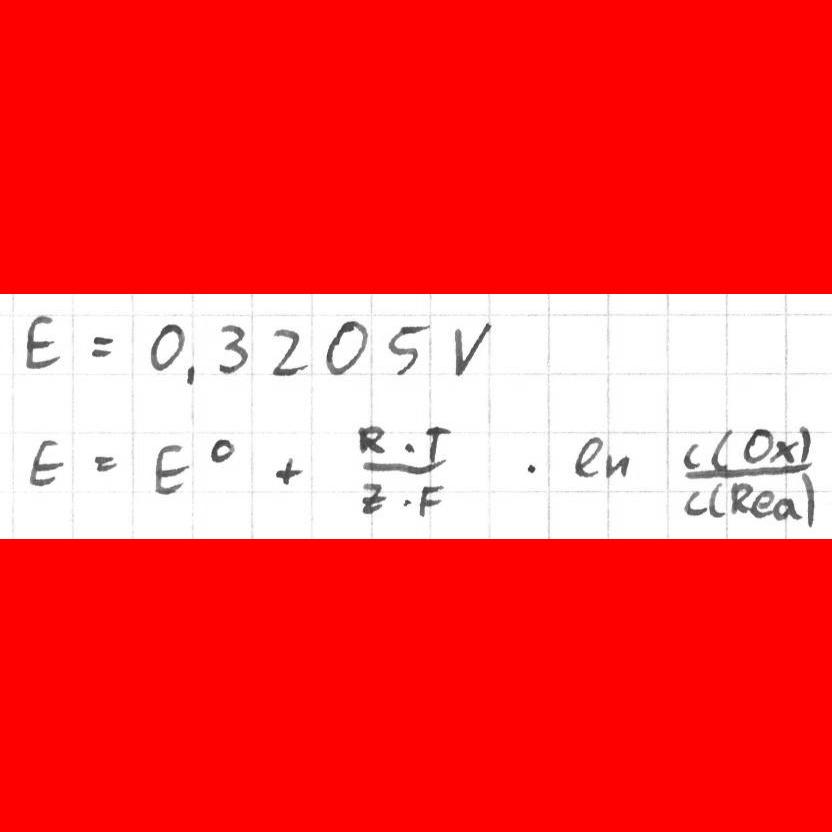 E = 0,3205 V
E = E⁰ + (R · T)/(z · F) · ln c(Ox)/c(Red)